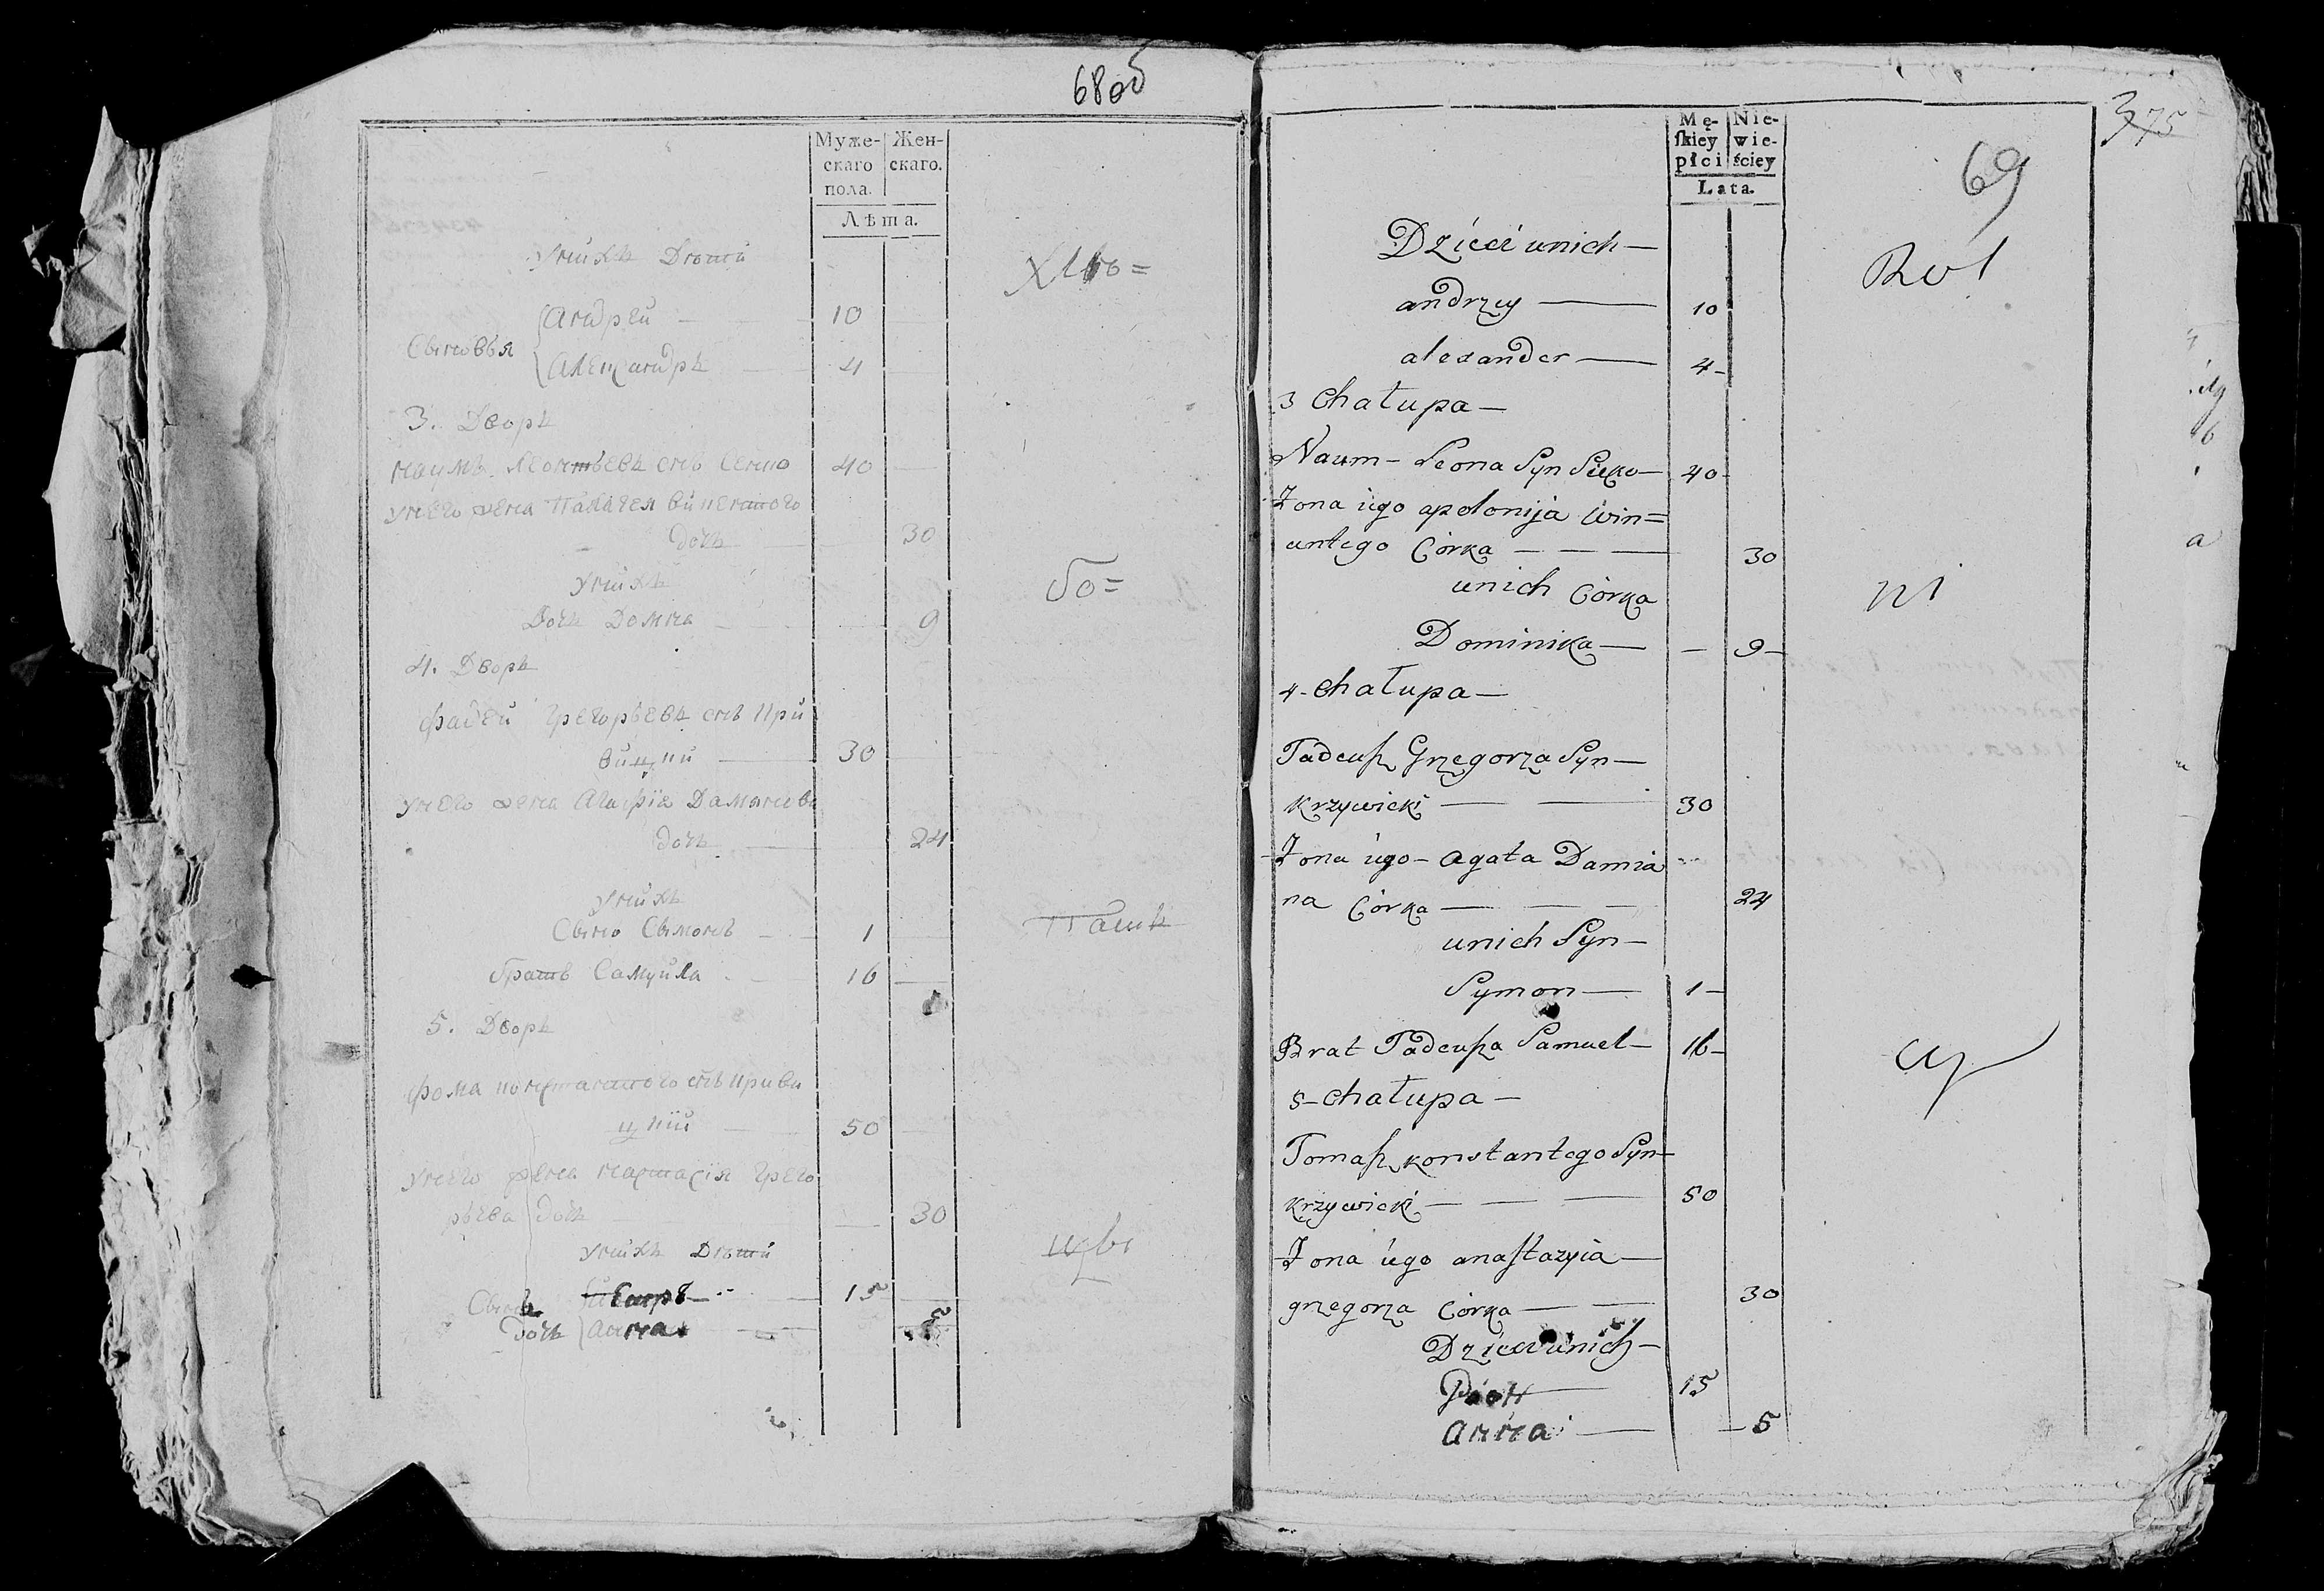 68 об
Муже-
скаго
пола.
Жен-
скаго.
Лѣта.
Унихъ Дѣти
Хлѣ=
Сыновья
Андрей — 10
Александръ — 4
3. Дворъ
Наумъ Леонтьевъ снъ Сенко 40
Унего жена Палагея Винцентого
дочь — 30
Унихъ
Дочь Домна — 9
бо=
4. Дворъ
Фадей Грегорьевъ снъ Кри
вицкий — 30
Унего жена Агафія Дамянова
дочь — 24
Унихъ
Сынъ Сымонъ — 1
Пашь
братъ Самуйла — 16
5. Дворъ
Фома Константого снъ Криви
цкий — 50
Унего жена Настасія Грего
рьева дочь — 30
Унихъ Дѣти
цы
Сынъ Петръ — 15
дочь Анна — 5
375
69
Mę-
ſkiey
płci
Nie-
wie-
ściey
Lata.
Dzieci unich —
Rol
andrzey — 10
alexander — 4 -
3 Chałupa —
Naum - Leona Syn — 40 -
Żona iego apolonija Win=
centego Córka — — — 30
unich Córka
ni
Dominika — — 9 —
4 - Chałupa —
Tadeuſz Grzegorza Syn —
Krzywicki — — 30
Żona iego - agata Damia
na Córka — — — 24
unich Syn —
Symon — 1 —
Brat Tadeuſza Samuel — 16 —
cy
5 - Chałupa —
Tomaſz Konstantego Syn —
Krzywicki — — — 50
Żona iego anaſtazyia —
grzegorza Córka — — 30
Dzieci unich —
Piotr — 15
anna — — 5